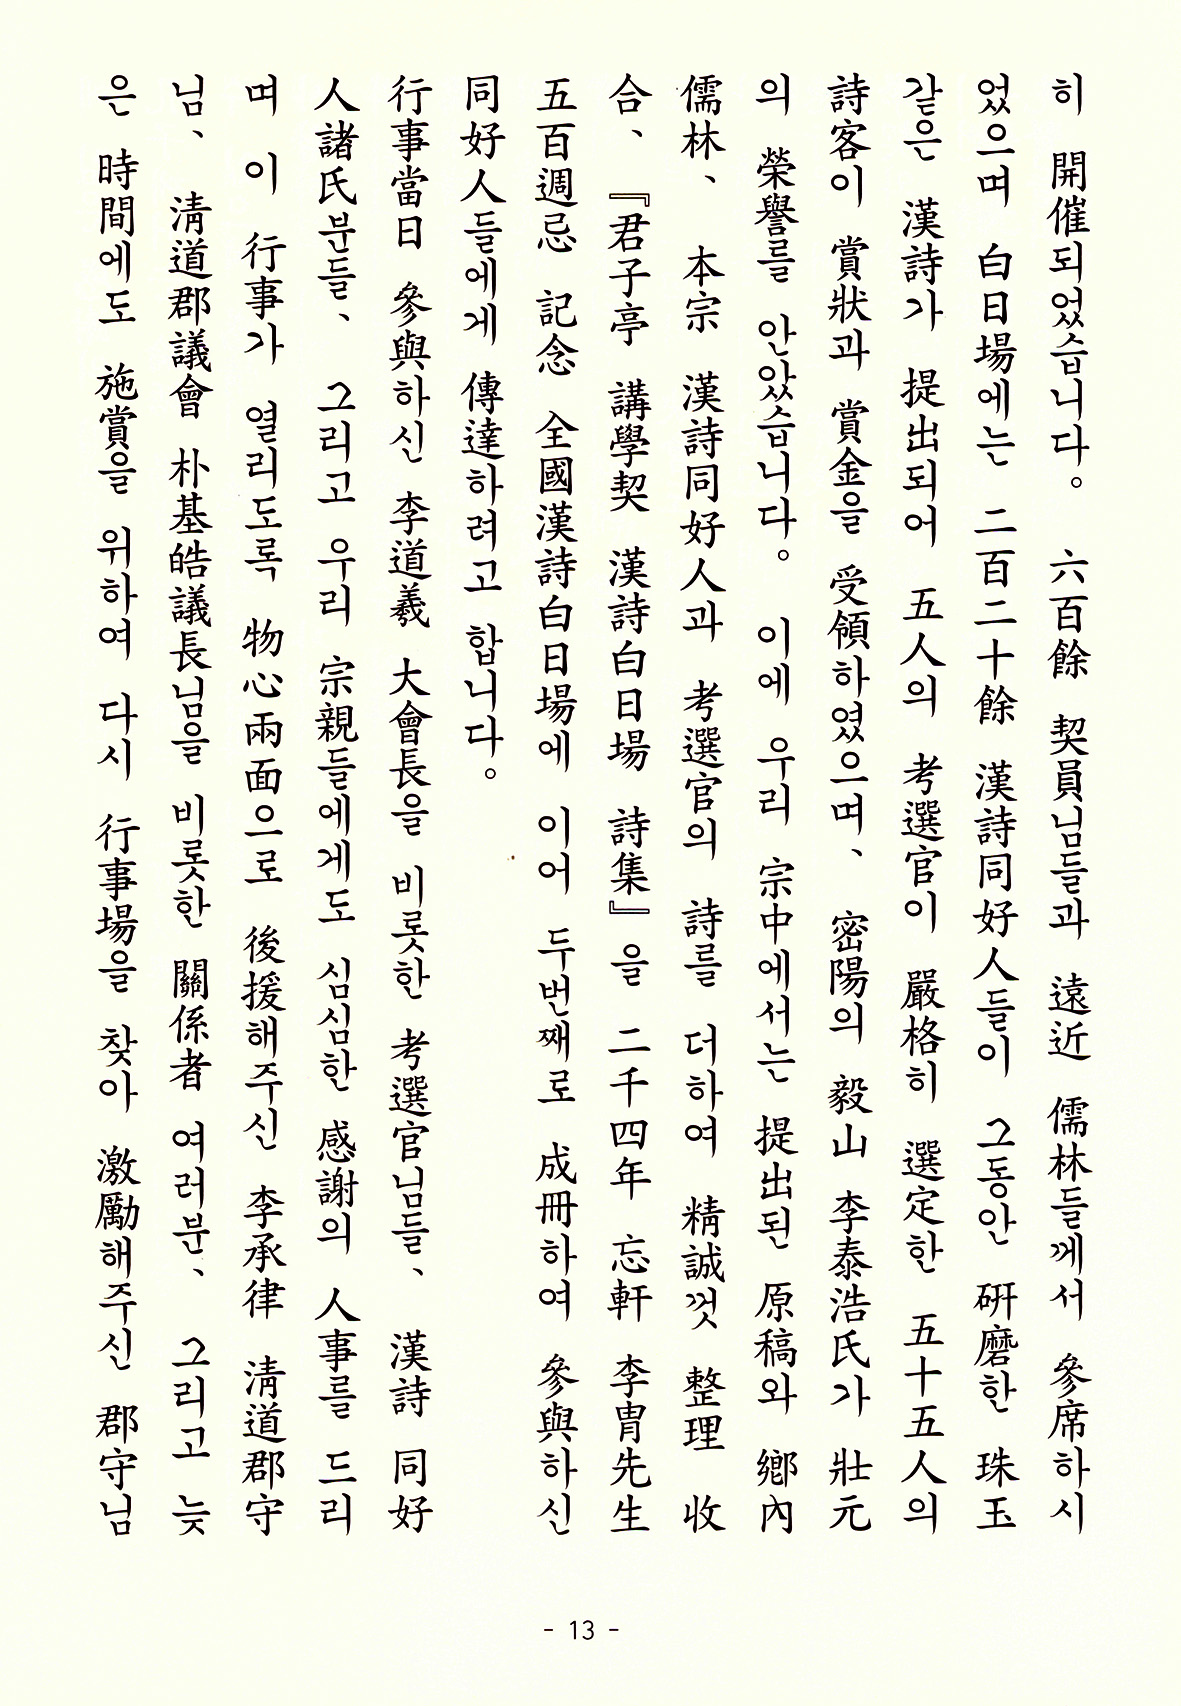 히 開催되었습니다。 六百餘 契員님들과 遠近 儒林들께서 參席하시
었으며 白日場에는 二百二十餘 漢詩同好人들이 그동안 硏磨한 珠玉
같은 漢詩가 提出되어 五人의 考選官이 嚴格히 選定한 五十五人의
詩客이 賞狀과 賞金을 受領하였으며、 密陽의 毅山 李泰浩氏가 壯元
의 榮譽를 안았습니다。 이에 우리 宗中에서는 提出된 原稿와 鄕內
儒林、 本宗 漢詩同好人과 考選官의 詩를 더하여 精誠껏 整理 收
合、 『君子亭 講學契 漢詩白日場 詩集』을 二千四年 忘軒 李胄先生
五百週忌 記念 全國漢詩白日場에 이어 두번째로 成冊하여 參與하신
同好人들에게 傳達하려고 합니다。
行事當日 參與하신 李道羲 大會長을 비롯한 考選官님들、 漢詩 同好
人諸氏분들、 그리고 우리 宗親들에게도 심심한 感謝의 人事를 드리
며 이 行事가 열리도록 物心兩面으로 後援해주신 李承律 淸道郡守
님、 淸道郡議會 朴基皓議長님을 비롯한 關係者 여러분、 그리고 늦
은 時間에도 施賞을 위하여 다시 行事場을 찾아 激勵해주신 郡守님
- 13 -